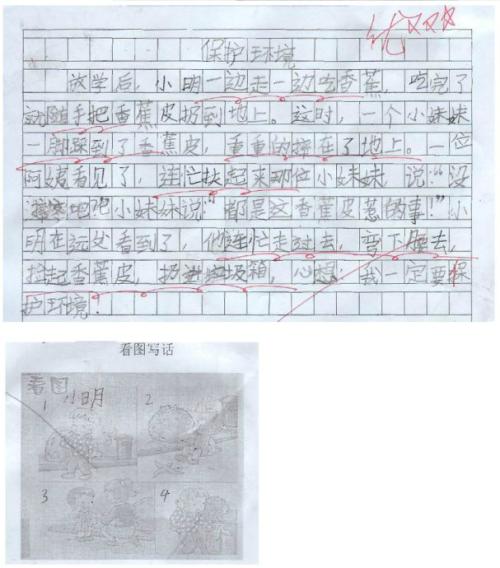 优
保护环境
放学后，小明一边走一边吃香蕉，吃完了
就随手把香蕉皮扔到地上。这时，一个小妹妹
一脚踩到了香蕉皮，重重的摔在了地上。一位
阿姨看见了，连忙扶起来那位小妹妹，说：“没
事吧？小妹妹说“都是这香蕉皮惹的事！”小
明在远处看到了，他连忙走过去，弯下腰去，
捡起香蕉皮，扔进垃圾箱，心想：我一定要保
护环境！
看图写话
看图
1 小明 2
3 4